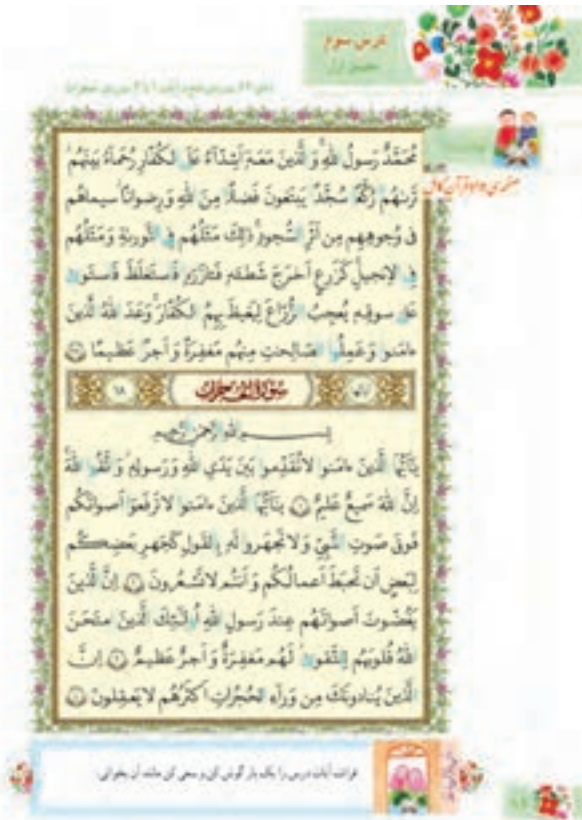 درس سوم
جلسه‌ی اول
مُحَمَّدٌ رَسولُ اللهِ وَ الَّذینَ مَعَهۥٓ اَشِدّآءُ عَلَی الکُفّارِ رُحَمآءُ بَینَهُم
تَرىٰهُم رُکَّعًا سُجَّدًا یَبتَغونَ فَضلًا مِنَ اللهِ وَ رِضوانًا سیماهُم
فی وُجوهِهِم مِن اَثَرِ السُّجودِ ذٰلِکَ مَثَلُهُم فِی التَّورىٰةِ وَ مَثَلُهُم
فِی الاِنجیلِ کَزَرعٍ اَخرَجَ شَطئَهۥ فَـٔازَرَهۥ فَاستَغلَظَ فَاستَوىٰ
عَلىٰ سوقِهٖ یُعجِبُ الزُّرّاعَ لِیَغیظَ بِهِمُ الکُفّارَ وَعَدَ اللهُ الَّذینَ
ءامَنوا وَ عَمِلُوا الصّالِحٰتِ مِنهُم مَغفِرَةً وَ اَجرًا عَظیمًا ٢٩
سُورَةُ الحُجُرات ١٨
بِسمِ اللهِ الرَّحمٰنِ الرَّحیمِ
یٰٓاَیُّهَا الَّذینَ ءامَنوا لا تُقَدِّموا بَینَ یَدَیِ اللهِ وَ رَسولِهٖ وَ اتَّقُوا اللهَ
اِنَّ اللهَ سَمیعٌ عَلیمٌ ١ یٰٓاَیُّهَا الَّذینَ ءامَنوا لا تَرفَعوٓا اَصواتَکُم
فَوقَ صَوتِ النَّبِیِّ وَ لا تَجهَروا لَهۥ بِالقَولِ کَجَهرِ بَعضِکُم
لِبَعضٍ اَن تَحبَطَ اَعمالُکُم وَ اَنتُم لا تَشعُرونَ ٢ اِنَّ الَّذینَ
یَغُضّونَ اَصواتَهُم عِندَ رَسولِ اللهِ اُولٰٓئِکَ الَّذینَ امتَحَنَ
اللهُ قُلوبَهُم لِلتَّقوىٰ لَهُم مَغفِرَةٌ وَ اَجرٌ عَظیمٌ ٣ اِنَّ
الَّذینَ یُنادونَکَ مِن وَرآءِ الحُجُراتِ اَکثَرُهُم لا یَعقِلونَ ٤
قرائت آیات درس را یک بار گوش کن و سعی کن مانند آن بخوانی.